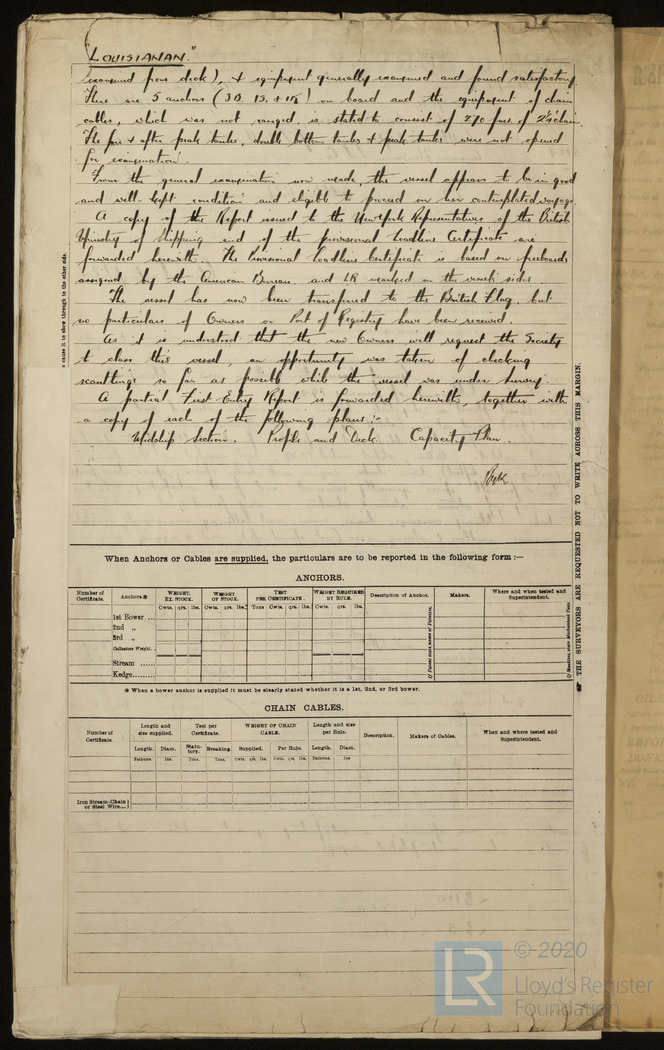 "LOUISIANAN."
examined from dock), & equipment generally examined and found satisfactory.
There are 5 anchors (3B. 1S. + 1K) on board and the equipment of chain
cables, which was not ranged, is stated to consist of 270 fms. of 2¼" chain.
The fore & after peak tanks, double bottom tanks & peak tanks were not opened
for examination.
From the general examination now made, the vessel appears to be in good
and well kept condition and eligible to proceed on her contemplated voyage.
A copy of the Report issued to the New York Representatives of the British
Ministry of Shipping and of the provisional Loadline Certificate are
forwarded herewith. The Provisional Loadline Certificate is based on freeboards
assigned by the American Bureau. and LR marked on the vessels sides
The vessel has now been transferred to the British Flag, but
no particulars of Owners or Port of Registry have been received.
As it is understood that the new Owners will request the Society
to class this vessel, an opportunity was taken of checking
scantlings so far as possible while the vessel was under survey.
A partial First Entry Report is forwarded herewith, together with
a copy of each of the following plans:-
Midship Section. Profile and Deck. Capacity Plan.
When Anchors or Cables are supplied, the particulars are to be reported in the following form :—
ANCHORS.
Number of Certificate. Anchors.* WEIGHT, EX. STOCK. WEIGHT OF STOCK. TEST PER CERTIFICATE. WEIGHT REQUIRED BY RULE. Description of Anchor. Makers. Where and when tested and Superintendent.
Cwts. qrs. lbs. Cwts. qrs. lbs. Tons Cwts. qrs. lbs. Cwts. qrs. lbs.
1st Bower ...
2nd „
3rd „
Collective Weight.
Stream ......
Kedge........
* When a bower anchor is supplied it must be clearly stated whether it is a 1st, 2nd, or 3rd bower.
CHAIN CABLES.
Number of Certificate. Length and size supplied. Test per Certificate. WEIGHT OF CHAIN CABLE. Length and size per Rule. Description. Makers of Cables. When and where tested and Superintendent.
Length. Diam. Statutory. Breaking. Supplied. Per Rule. Length. Diam.
Fathoms. Ins. Tons. Tons. Cwts. qrs. lbs. Cwts. qrs. lbs. Fathoms. Ins
Iron Stream Chain
or Steel Wire...
THE SURVEYORS ARE REQUESTED NOT TO WRITE ACROSS THIS MARGIN.
LR
© 2020
Lloyd's Register
Foundation